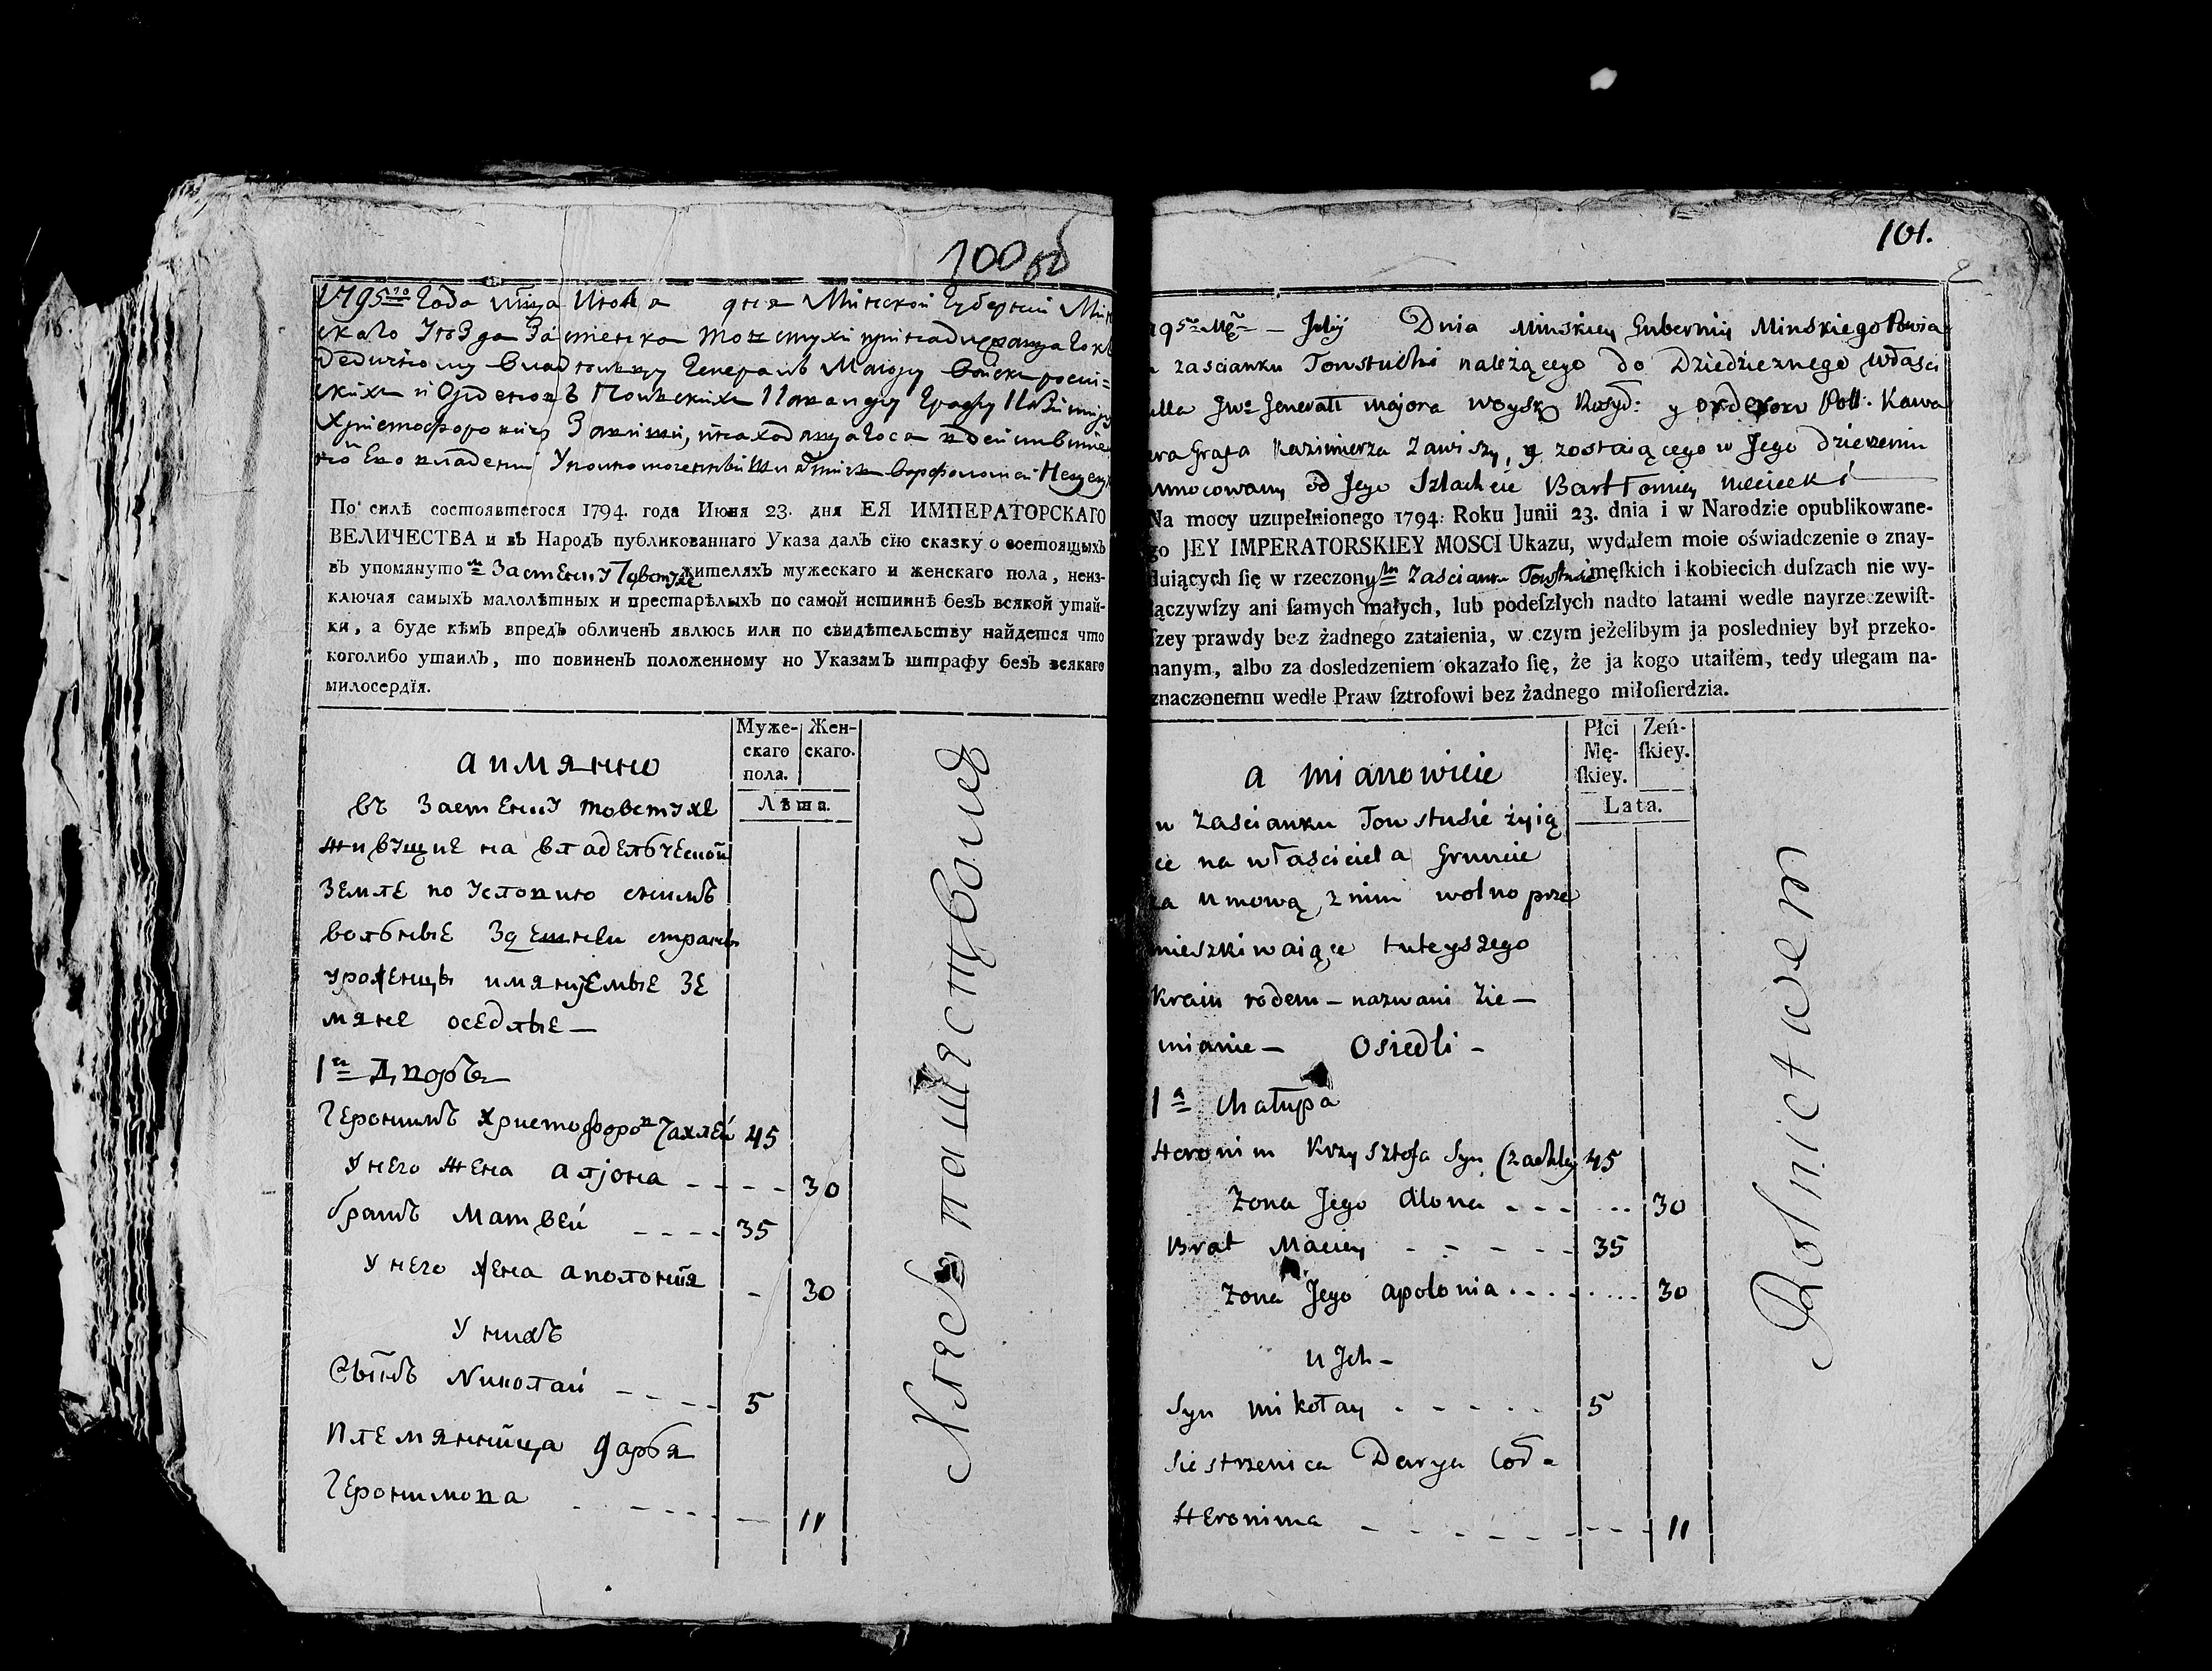 100 об
1795го Года мца Июля дня Минской Губерніи Мин
скаго Уѣзда Застенка Товстухи принадлежащагося
дедичному владельцу Генералъ Маіору войскъ росій=
скихъ и Орденовъ Польскихъ Кавалеру Графу Казимиру
Христофоровичу Завиши, и находящагося в действите
Его владеніи Уполномоченный Шляхтичъ варфоломей
По силѣ состоявшегося 1794. года Июня 23. дня ЕЯ ИМПЕРАТОРСКАГО
ВЕЛИЧЕСТВА и въ Народъ публикованнаго Указа далъ сію сказку о состоящыхъ
въ упомянутомъ Застенку Товстухе жителяхъ мужескаго и женскаго пола, неиз-
ключая самыхъ малолѣтныхъ и престарѣлыхъ по самой истиннѣ безъ всякой утай-
ки, а буде кѣмъ впредь обличенъ явлюсь или по свидѣтельству найдется что
коголибо утаилъ, то повиненъ положенному по Указамъ штрафу безъ всякаго
милосердїя.
Муже-
скаго
пола.
Жен-
скаго.
Лѣта.
а имянно
въ Застенку товстухе
живущие на владелъческой
земле по условию снимъ
волъные здешнеи страны
уроженцы имянуемые зе
мяне оседлые —
1й Дворъ
Геронимъ Христофоровъ Чахлей 45
У него жена алiона - - - - 30
братъ Матвей - - - - 35
У него жена аполонiя - 30
У нихъ
Сынъ Николай - - - - 5
племянница дарья
Геронимова - - - - — 11
Хлебопашествомъ
101.
195го Mca — Julij Dnia Minskiey Gubernij Minskiego Powia
zascianku Towstuchi należącego do Dziedzicznego właści
ella Jwo Jenerała Majora woysk Rosyd: y orderow Poll. Kawa
era Grafa Kazimierza Zawiszy, y zostaiącego w Jego dzierzeniu
umocowany od Jego Szlachcic Bartłomiey
Na mocy uzupełnionego 1794. Roku Junii 23. dnia i w Narodzie opublikowane-
go JEY IMPERATORSKIEY MOSCI Ukazu, wydałem moie oświadczenie o znay-
duiących ſię w rzeczonym Zascianku Towstusie męſkich i kobiecich duſzach nie wy-
łączywſzy ani ſamych małych, lub podeſzłych nadto latami wedle nayrzeczewiſt-
ſzey prawdy bez żadnego zataienia, w czym jeżelibym ja posledniey był przeko-
nanym, albo za dosledzeniem okazało ſię, że ja kogo utaiłem, tedy ulegam na-
znaczonemu wedle Praw ſztrofowi bez żadnego miłoſierdzia.
Płci
Mę-
ſkiey.
Zeń-
ſkiey.
Lata.
a mianowicie
w Zaścianku Towstusie żyią
ce na właściciela Gruncie
za umową z nim wolno prze
mieszkiwaiące tuteyszego
Kraiu rodem — nazwani Zie —
mianie — Osiedli —
1a Chałupa
Heronim Krzysztofa Syn Czachley 45
Zona Jego Alona - - - ... 30
Brat Maciey - - - - - 35
Zona Jego apolonia . . . . . . . 30
u Jch —
Syn mikołay - - - - - 5
Siestrzenica Darya Cor
Heronima - - - - - - - - 11
Rolnictwem